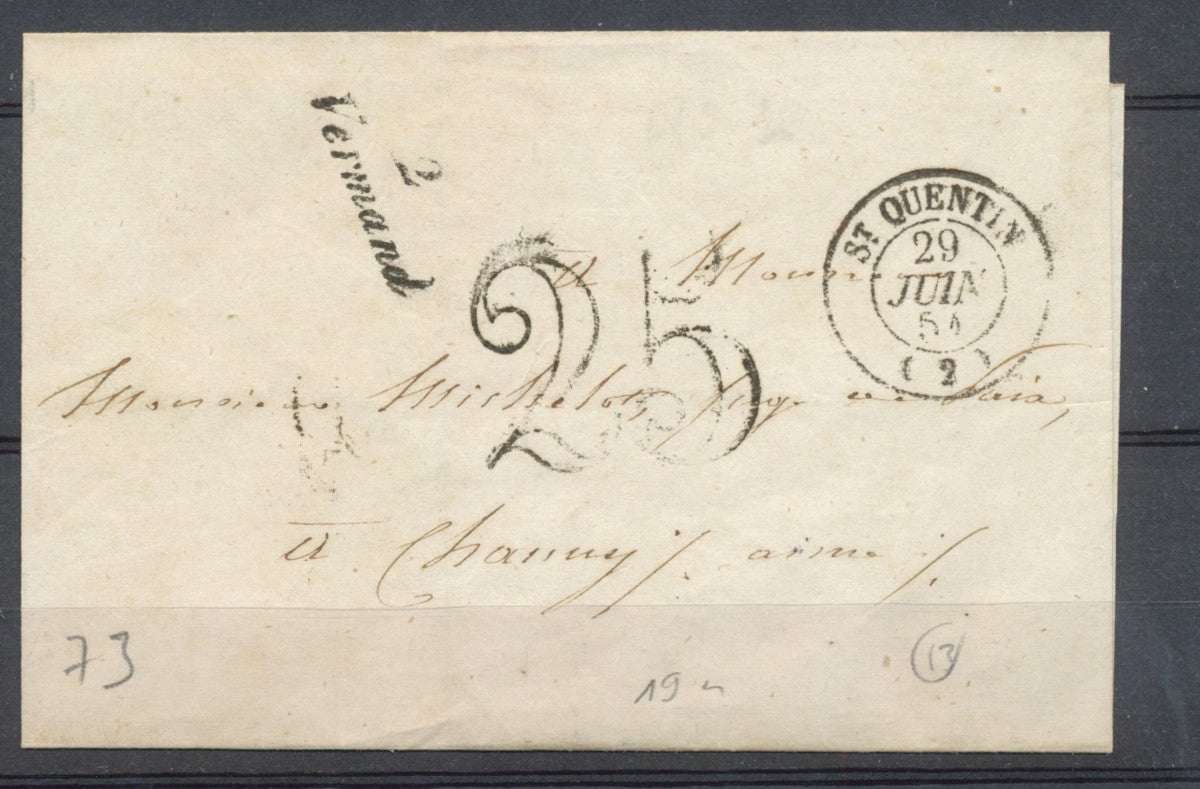 2
Vermand
ST QUENTIN
29
JUIN
51
(2)
25
A Monsieur
Monsieur Michelot, juge de Paix,
A Chauny /. aisne /.
73
19
13